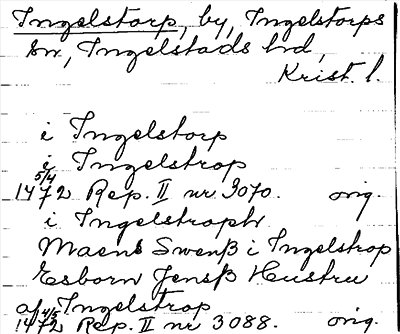 Ingelstorp, by, Ingelstorps
sn, Ingelstads hrd,
Krist. l.
i Ingelstorp
i Ingelstrop
5/4 1472 Rep. II nr 3070. orig.
i Ingelstroph
Maens Swenß i Ingelstrop
Esborn Jensß Hustru
af Ingelstrop
14/5 1472 Rep. II nr 3088. orig.